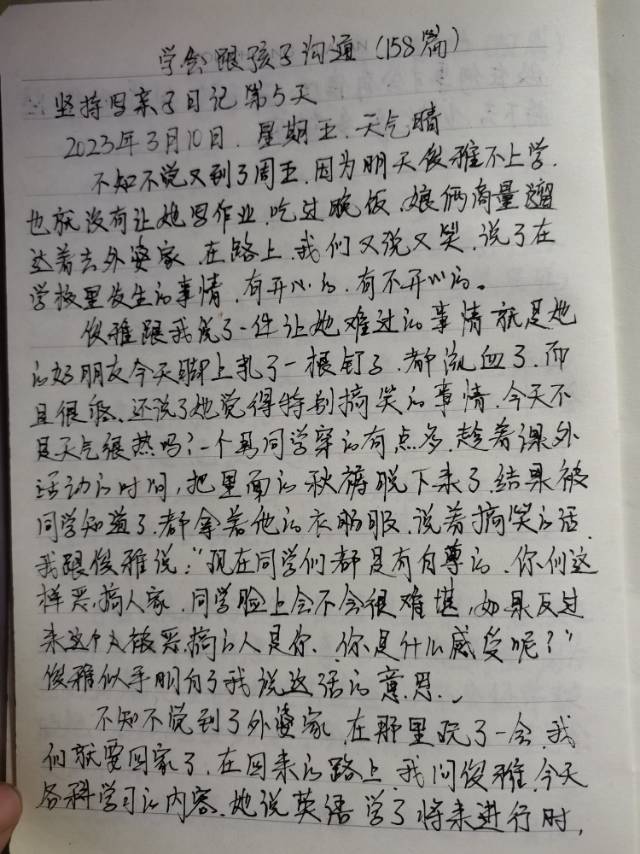 学会跟孩子沟通（158篇）
坚持写亲子日记第5天
2023年3月10日．星期五．天气晴
不知不觉又到了周五，因为明天俊雅不上学，
也就没有让她写作业，吃过晚饭，娘俩商量遛
达着去外婆家，在路上，我们又说又笑，说了在
学校里发生的事情，有开心的，有不开心的。
俊雅跟我说了一件让她难过的事情就是她
的好朋友今天脚上扎了一根钉子，都流血了，而
且很疼、还说了她觉得特别搞笑的事情，今天不
是天气很热吗？一个男同学穿的有点多，趁着课外
活动的时间，把里面的秋裤脱下来了，结果被
同学知道了，都拿着他的衣服，说着搞笑的话，
我跟俊雅说："现在同学们都是有自尊的，你们这
样恶搞人家，同学脸上会不会很难堪，如果反过
来这个被恶搞的人是你，你是什么感受呢？"
俊雅似乎明白了我说这话的意思。
不知不觉到了外婆家，在那里玩了一会，我
们就要回家了，在回来的路上，我问俊雅，今天
各科学习的内容，她说英语学了将来进行时，